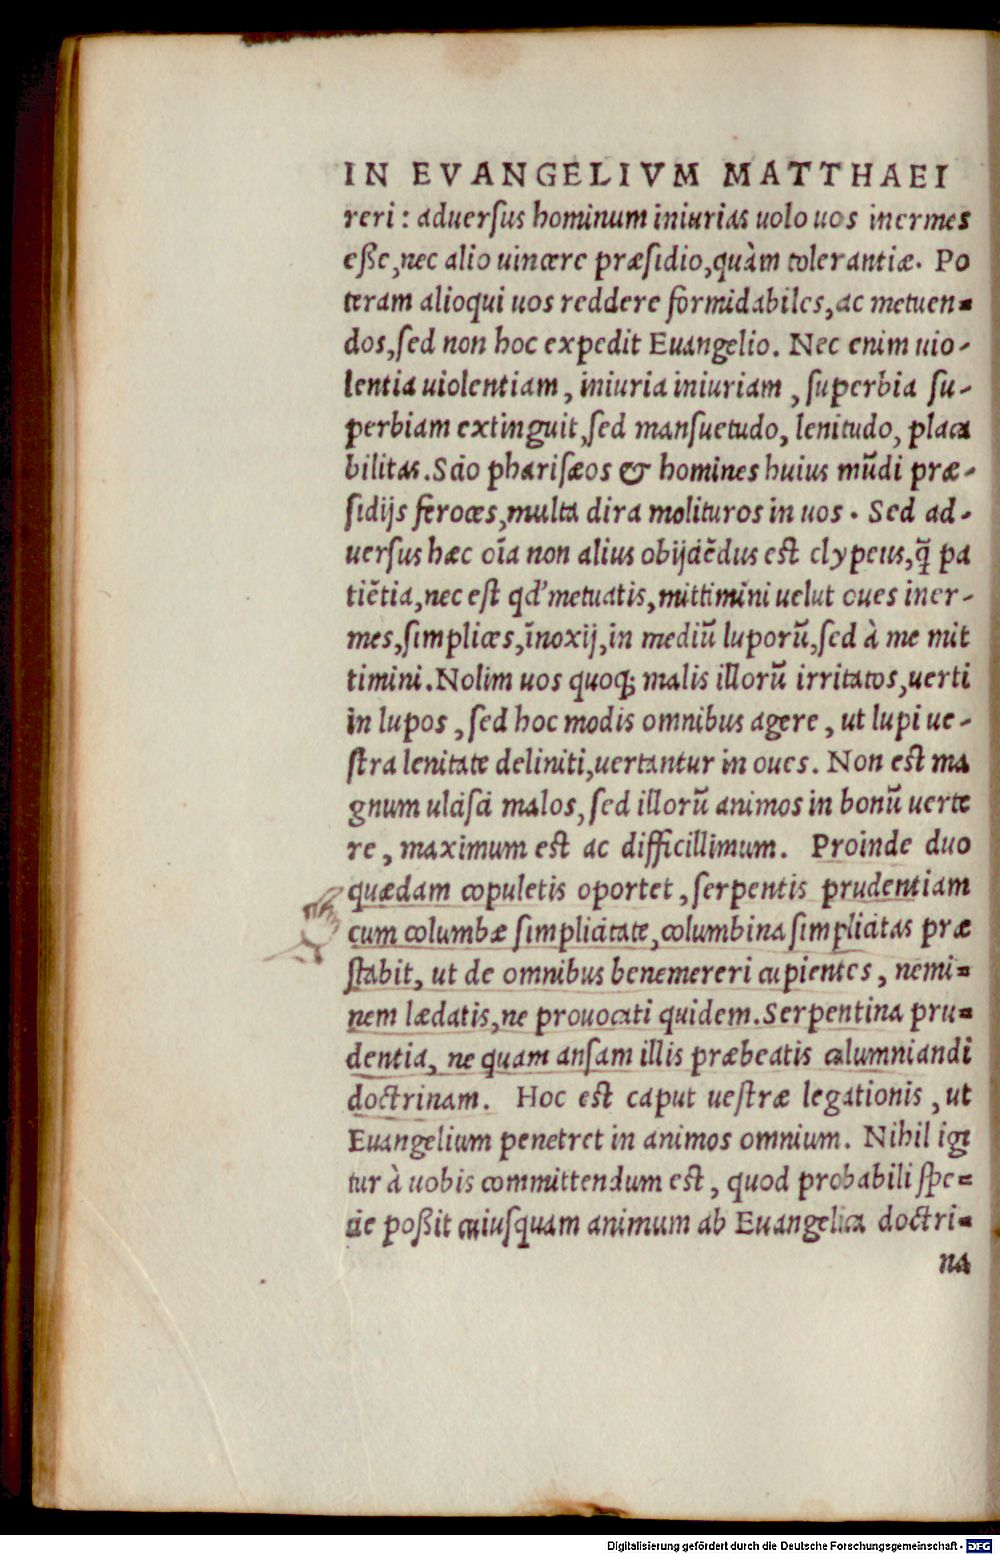 IN EVANGELIVM MATTHAEI
reri: aduersus hominum iniurias uolo uos inermes
eße, nec alio uincere præsidio, quàm tolerantiæ. Po
teram alioqui uos reddere formidabiles, ac metuen=
dos, sed non hoc expedit Euangelio. Nec enim uio-
lentia uiolentiam, iniuria iniuriam, superbia su-
perbiam extinguit, sed mansuetudo, lenitudo, placa
bilitas. Scio pharisæos & homines huius mũdi præ-
sidijs feroces, multa dira molituros in uos. Sed ad-
uersus hæc oĩa non alius obijciẽdus est clypeus, q̃ pa
tiẽtia, nec est qd' metuatis, mittimini uelut oues iner-
mes, simplices, ĩnoxij, in mediũ luporũ, sed à me mit
timini. Nolim uos quoq; malis illorũ irritatos, uerti
in lupos, sed hoc modis omnibus agere, ut lupi ue-
stra lenitate deliniti, uertantur in oues. Non est ma
gnum ulcisci malos, sed illorũ animos in bonũ uerte
re, maximum est ac difficillimum. Proinde duo
quædam copuletis oportet, serpentis prudentiam
cum columbæ simplicitate, columbina simplicitas præ
stabit, ut de omnibus benemereri cupientes, nemi=
nem lædatis, ne prouocati quidem. Serpentina pru=
dentia, ne quam ansam illis præbeatis calumniandi
doctrinam. Hoc est caput uestræ legationis, ut
Euangelium penetret in animos omnium. Nihil igi
tur à uobis committendum est, quod probabili spe=
cie poßit cuiusquam animum ab Euangelica doctri=
na
Digitalisierung gefördert durch die Deutsche Forschungsgemeinschaft - DFG